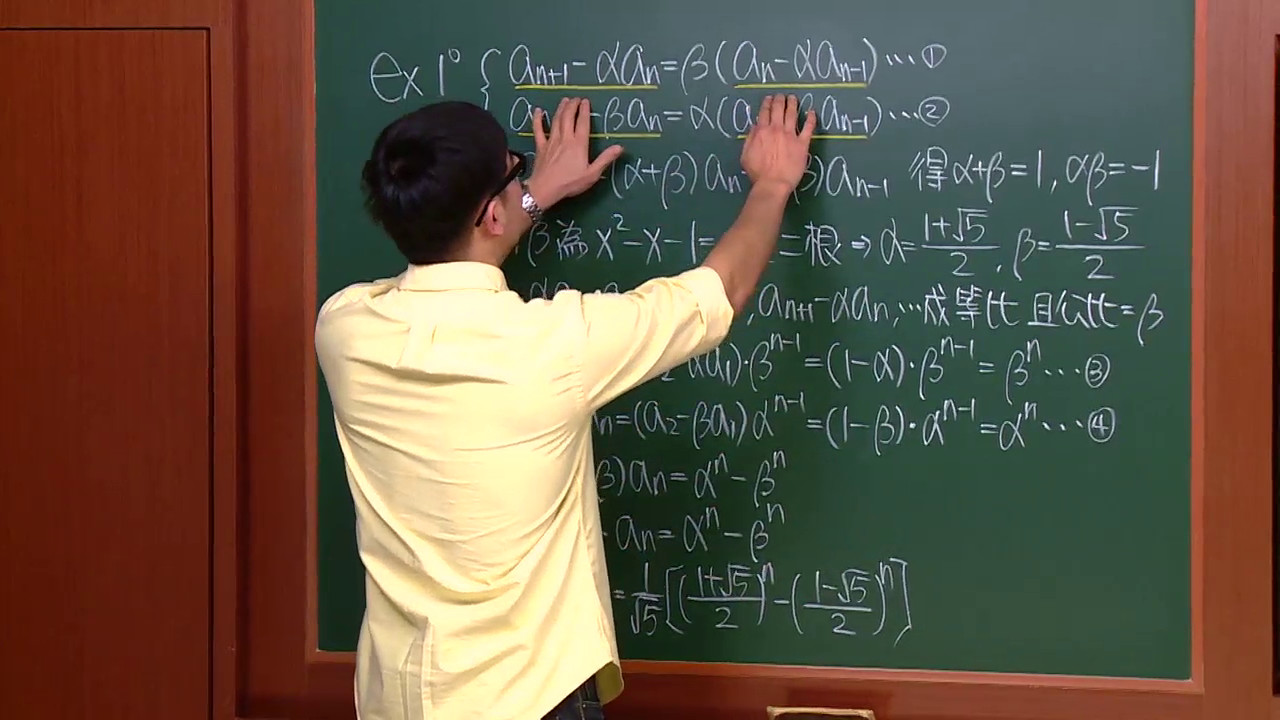 ex 1° { aₙ₊₁ - αaₙ = β(aₙ - αaₙ₋₁) … ①
aₙ - βaₙ = α(a βaₙ₋₁) … ②
(α+β)aₙ )aₙ₋₁ 得 α+β=1, αβ=-1
β為 x²-x-1= 二根 ⇒ α=\frac{1+√5}{2}, β=\frac{1-√5}{2}
, aₙ₊₁-αaₙ, … 成等比 且公比=β
αa₁)·βⁿ⁻¹ = (1-α)·βⁿ⁻¹ = βⁿ … ③
ₙ=(a₂-βa₁)αⁿ⁻¹ = (1-β)·αⁿ⁻¹ = αⁿ … ④
β)aₙ = αⁿ - βⁿ
aₙ = αⁿ - βⁿ
= \frac{1}{√5}[(\frac{1+√5}{2})ⁿ - (\frac{1-√5}{2})ⁿ]